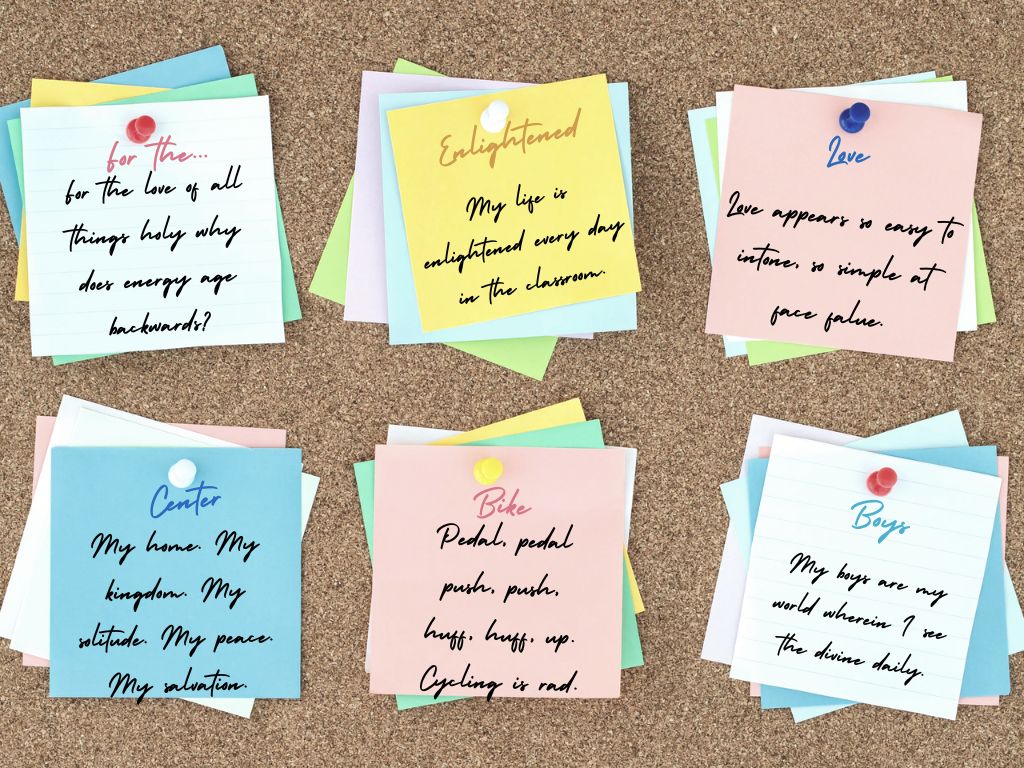 for the...
for the love of all
things holy why
does energy age
backwards?
Enlightened
My life is
enlightened every day
in the classroom.
Love
Love appears so easy to
intone, so simple at
face falue.
Center
My home. My
kingdom. My
solitude. My peace.
My salvation.
Bike
Pedal, pedal
push, push,
huff, huff, up.
Cycling is rad.
Boys
My boys are my
world wherein I see
the divine daily.